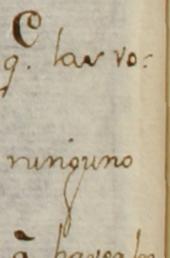 C
q. las vo:
ninguno